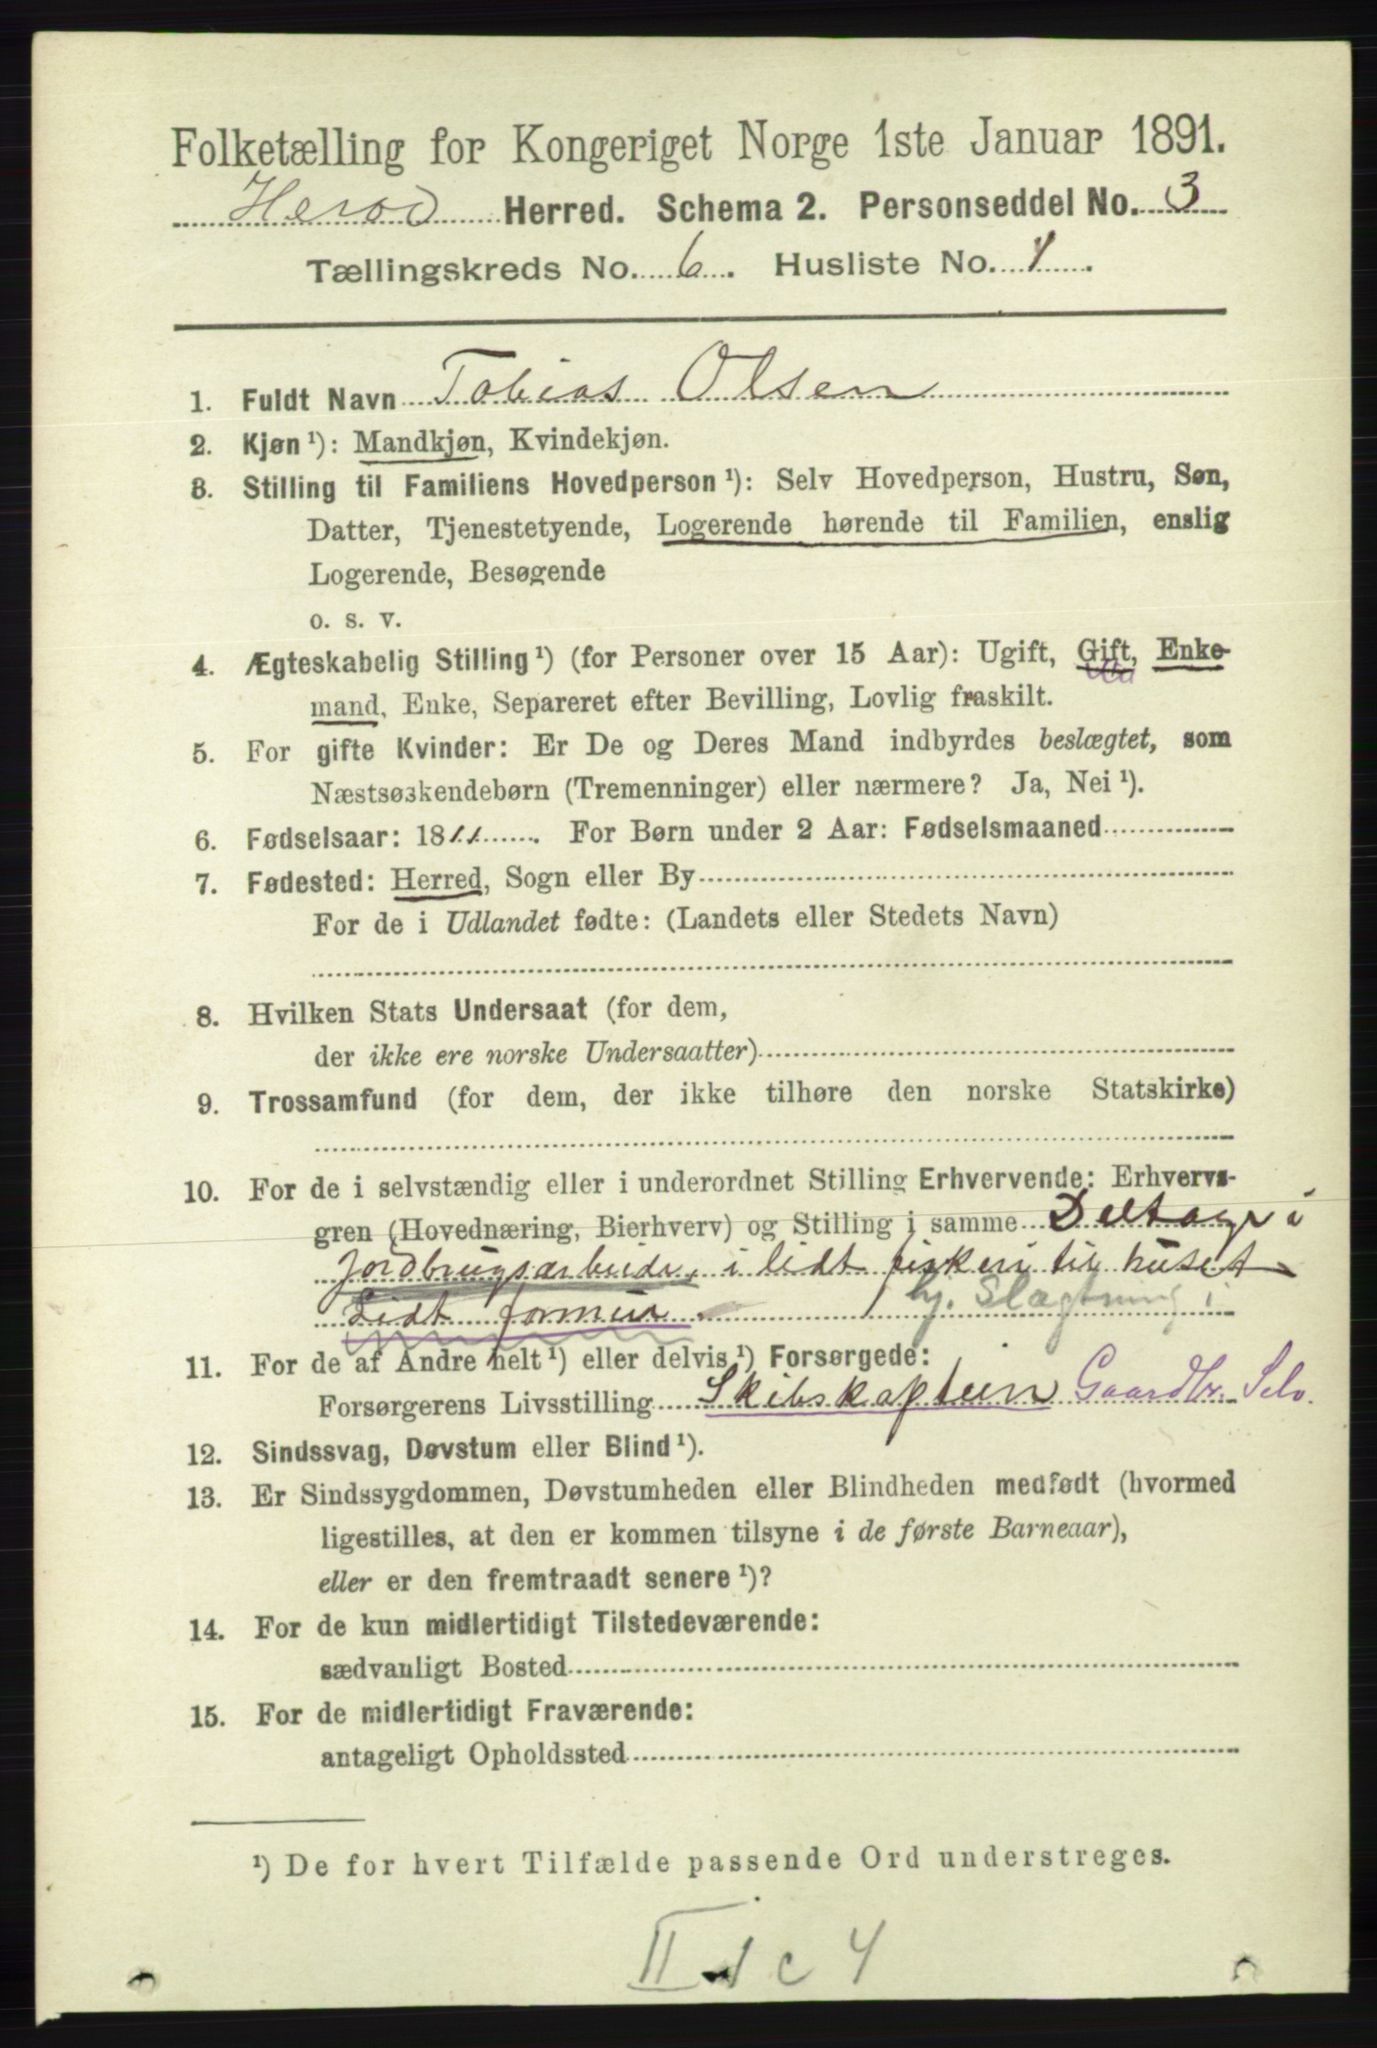 Folketælling for Kongeriget Norge 1ste Januar 1891.
Herred. Schema 2. Personseddel No. 3
Tællingskreds No. 6. Husliste No. 4.
1. Fuldt Navn Tobias Olsen
2. Kjøn ¹): Mandkjøn, Kvindekjøn.
3. Stilling til Familiens Hovedperson ¹): Selv Hovedperson, Hustru, Søn,
Datter, Tjenestetyende, Logerende hørende til Familien, enslig
Logerende, Besøgende
o. s. v.
4. Ægteskabelig Stilling ¹) (for Personer over 15 Aar): Ugift, Gift, Enke-
mand, Enke, Separeret efter Bevilling, Lovlig fraskilt.
5. For gifte Kvinder: Er De og Deres Mand indbyrdes beslægtet, som
Næstsøskendebørn (Tremenninger) eller nærmere? Ja, Nei ¹).
6. Fødselsaar: 1811. For Børn under 2 Aar: Fødselsmaaned
7. Fødested: Herred, Sogn eller By
For de i Udlandet fødte: (Landets eller Stedets Navn)
8. Hvilken Stats Undersaat (for dem,
der ikke ere norske Undersaatter)
9. Trossamfund (for dem, der ikke tilhøre den norske Statskirke)
10. For de i selvstændig eller i underordnet Stilling Erhvervende: Erhvervs-
gren (Hovednæring, Bierhverv) og Stilling i samme Deltager i
Jordbrugsarbeide, i lidt fiskeri til huset
Lidt formue hj. Slagtning i
11. For de af Andre helt ¹) eller delvis ¹) Forsørgede:
Forsørgerens Livsstilling Skibskaptein Gaardbr. Selv.
12. Sindssvag, Døvstum eller Blind ¹).
13. Er Sindssygdommen, Døvstumheden eller Blindheden medfødt (hvormed
ligestilles, at den er kommen tilsyne i de første Barneaar),
eller er den fremtraadt senere ¹)?
14. For de kun midlertidigt Tilstedeværende:
sædvanligt Bosted
15. For de midlertidigt Fraværende:
antageligt Opholdssted
¹) De for hvert Tilfælde passende Ord understreges.
II c 4